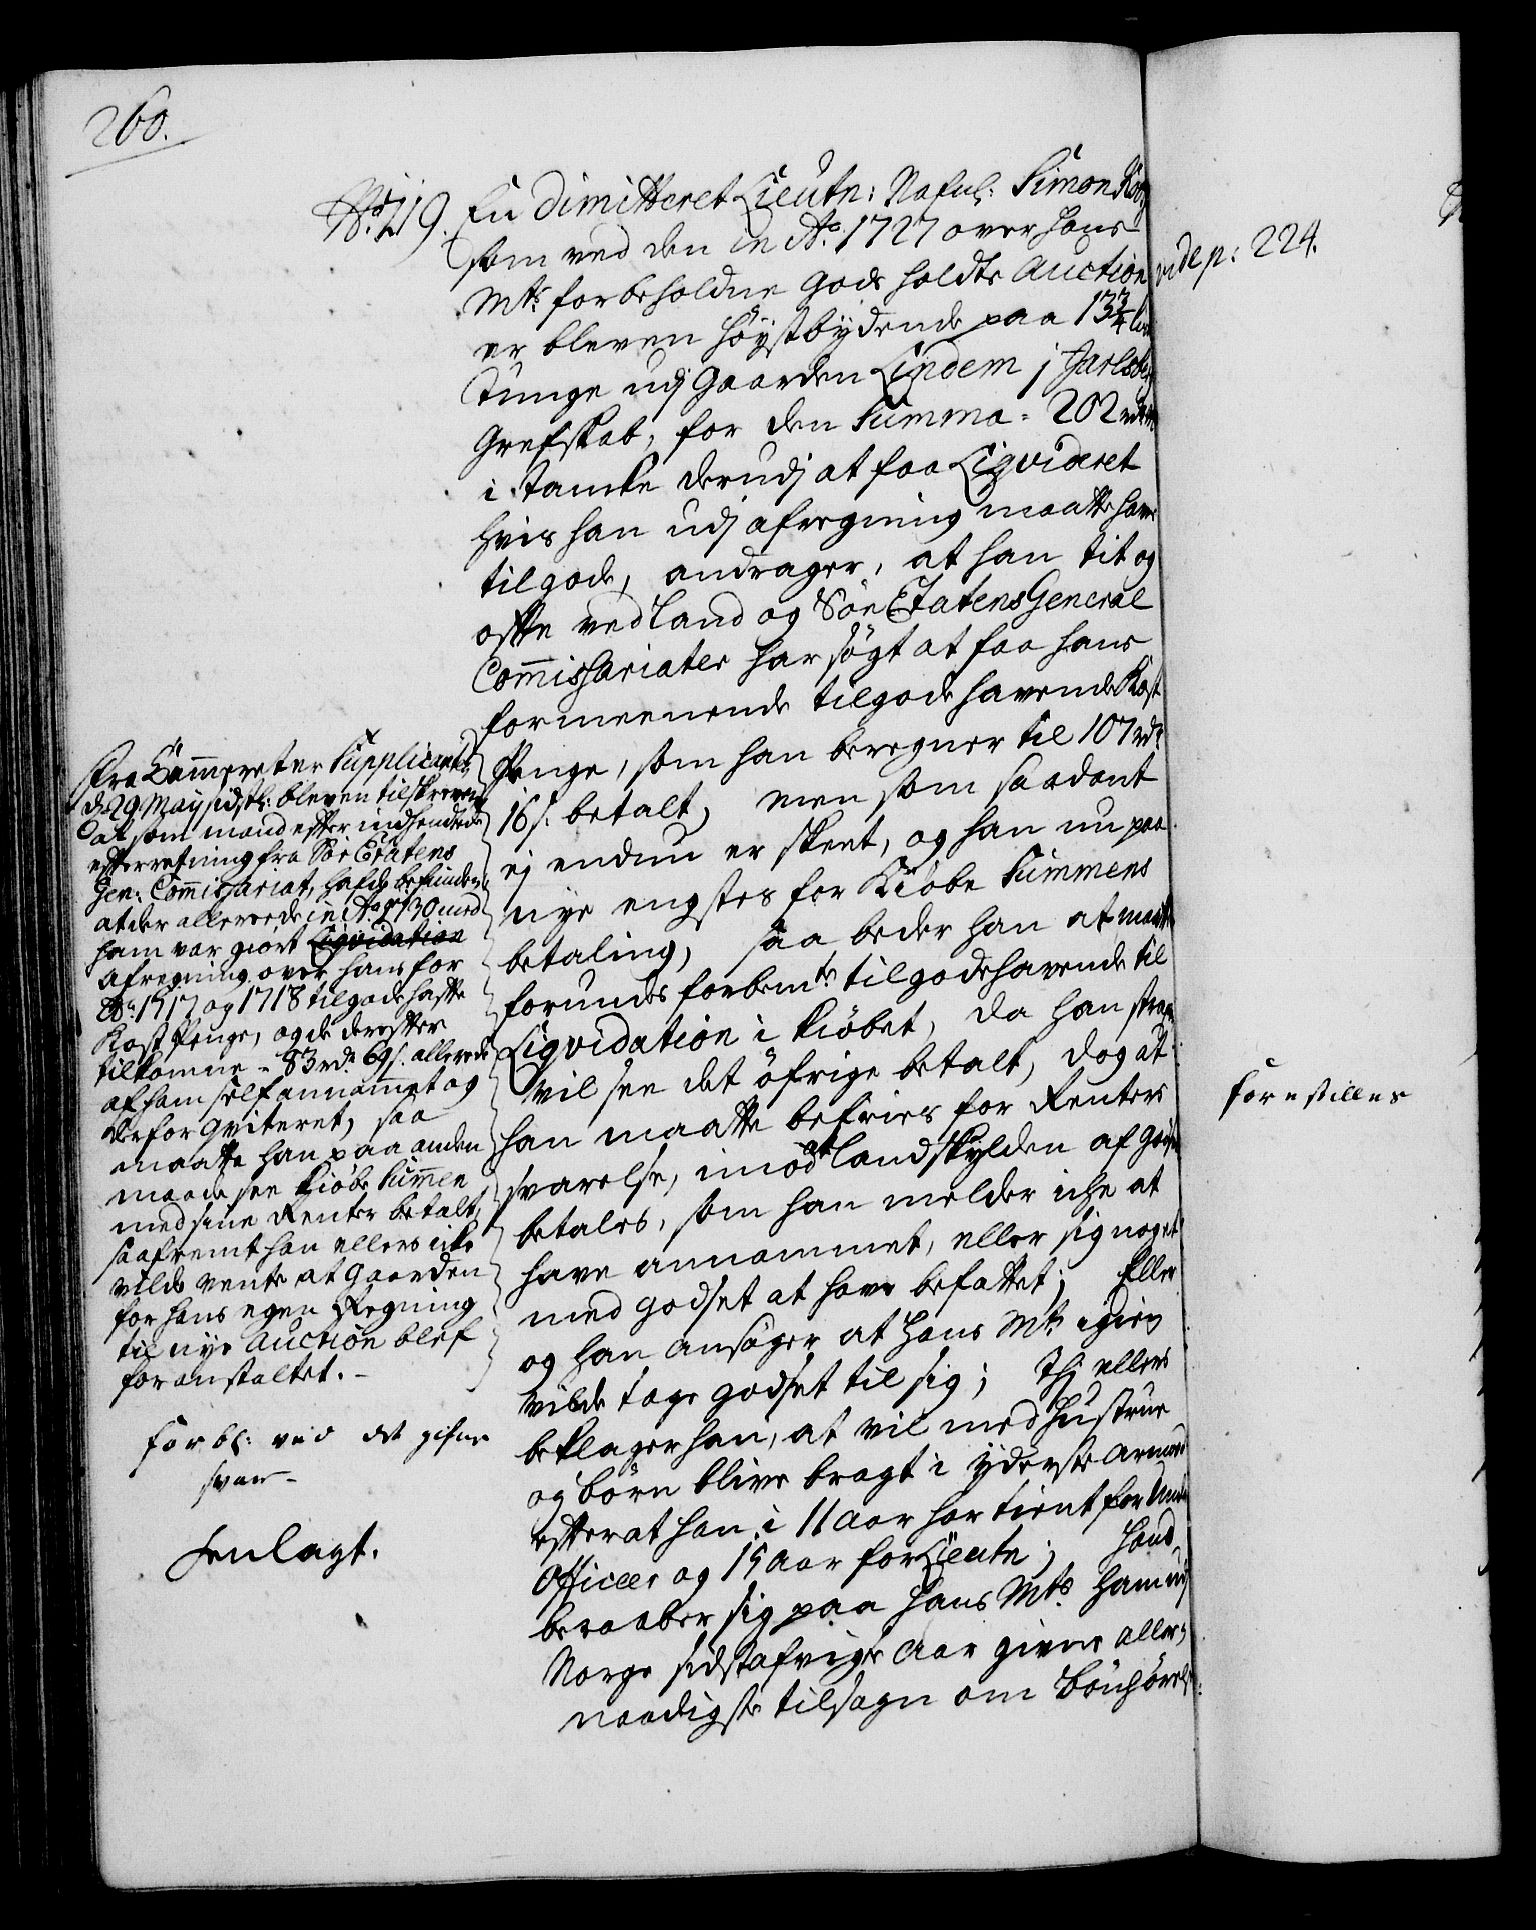 260.
No. 219. En Dimitteret Lieutn: Nafnl: Simon
som ved den in Ao. 1727 over hans
Mts: forbeholdne Gods holdte Auction
er bleven høystbydende paa 13¾
Tunge udj Gaarden Lindem j Jarlsberg
Grefskab, for den Summa - 202 rdr
i tancke derudj at faa Liqvideret
hvis han udj afregning maatte have
tilgode, andrager, at han tit og
ofte ved Land og Søe Etatens General
Commissariater har søgt at faa hans
formeenende tilgode havende Kost
Penge, som han beregner til 107 rdr
16 s. betalt, men som saadant
ej endnu er skeet, og han nu paa
nye engstes for Kiøbe Summens
betaling, saa beder han at maatte
forundes forbemte: tilgodehavende til
Liqvidation i kiøbet, da han strax
vil see det øfrige betalt, dog at
han maatte befries for Renters
svarelse, imod Landskylden af Godset
betales, som han melder icke at
have annammet, eller sig noget
med godset at have befattet; Eller
og han ansøger at Hans Mts: igien
vilde tage godset til sig; Thj ellers
beklager han, at vil med Hustrue
og Børn blive bragt i yderste Armod
efterat han i 11 Aar har tient for Under
Officeer og 15 Aar for Lieutn; Hand
beraaber sig paa Hans Mts. ham udj
Norge sidstafvigte Aar givne aller,,
naadigste tilsagn om Bønhørelse:
Fra Cammeret er Supplicanten
d. 29 Maij sidstl: bleven tilskreven
at som mand efter indhendtede
efterretning fra Søe Etatens
Gen: Commissariat, hafde befunden,
at der allereede in Ao. 1730 med
ham var giort Liqvidation
afregning over hans for
Ao. 1717 og 1718 tilgodehafte
Kost Penge, og de derefter
tilkomne - 83 rdr. 69 s. allerede
af ham self annammet og
derfor qviteret, saa
maatte han paa anden
maade see Kiøbe Summen
med sine Renter betalt,
saafremt han ellers icke
vilde vente at Gaarden
for hans egen Regning
til nye Auction blef
foranstaltet. -
forbl: ved det gifne
svar -
henlagt.
vide p: 224.
forestilles